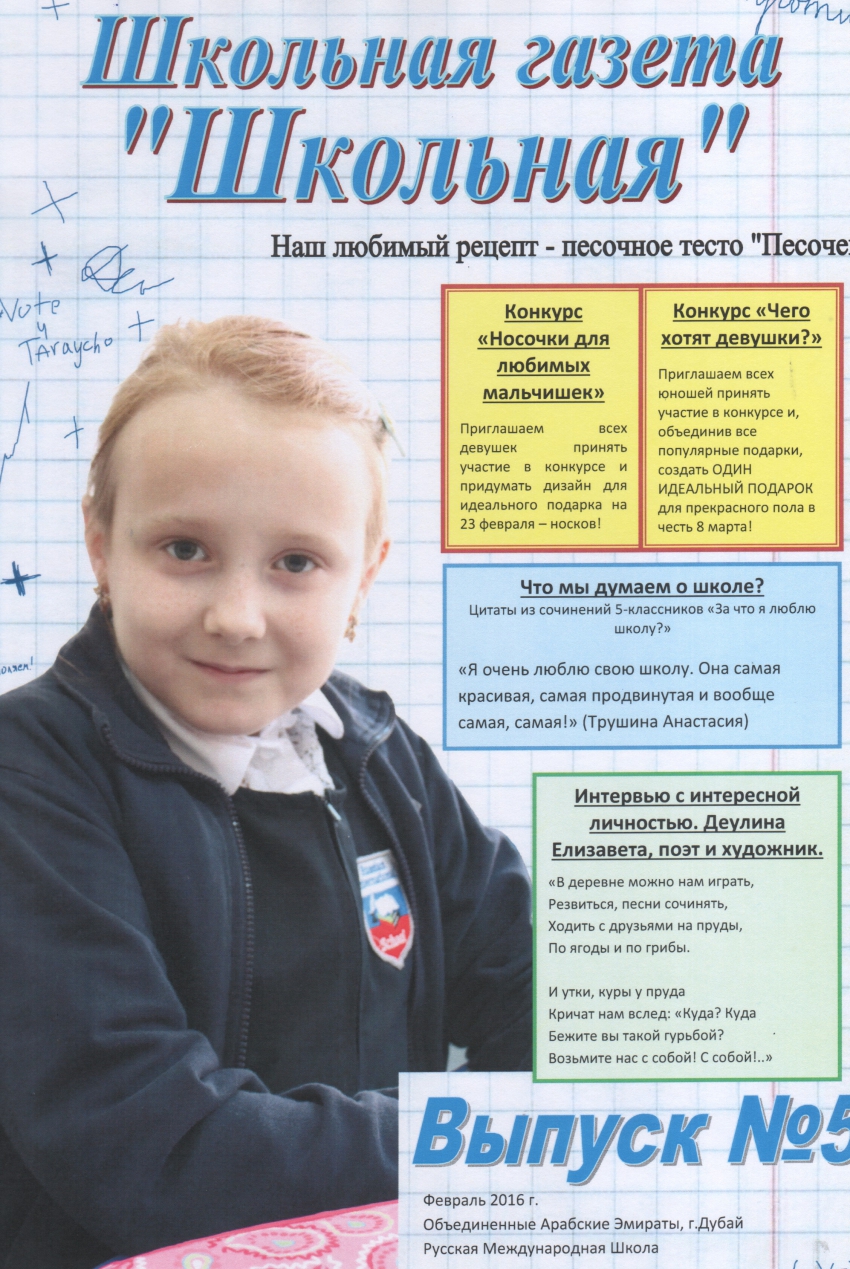 Школьная газета
"Школьная"
Наш любимый рецепт - песочное тесто "Песоче
Vote
y
TAraycho
Конкурс
«Носочки для
любимых
мальчишек»
Приглашаем всех
девушек принять
участие в конкурсе и
придумать дизайн для
идеального подарка на
23 февраля – носков!
Конкурс «Чего
хотят девушки?»
Приглашаем всех
юношей принять
участие в конкурсе и,
объединив все
популярные подарки,
создать ОДИН
ИДЕАЛЬНЫЙ ПОДАРОК
для прекрасного пола в
честь 8 марта!
Что мы думаем о школе?
Цитаты из сочинений 5-классников «За что я люблю
школу?»
«Я очень люблю свою школу. Она самая
красивая, самая продвинутая и вообще
самая, самая!» (Трушина Анастасия)
Интервью с интересной
личностью. Деулина
Елизавета, поэт и художник.
«В деревне можно нам играть,
Резвиться, песни сочинять,
Ходить с друзьями на пруды,
По ягоды и по грибы.
И утки, куры у пруда
Кричат нам вслед: «Куда? Куда
Бежите вы такой гурьбой?
Возьмите нас с собой! С собой!..»
School
Выпуск №5
Февраль 2016 г.
Объединенные Арабские Эмираты, г.Дубай
Русская Международная Школа